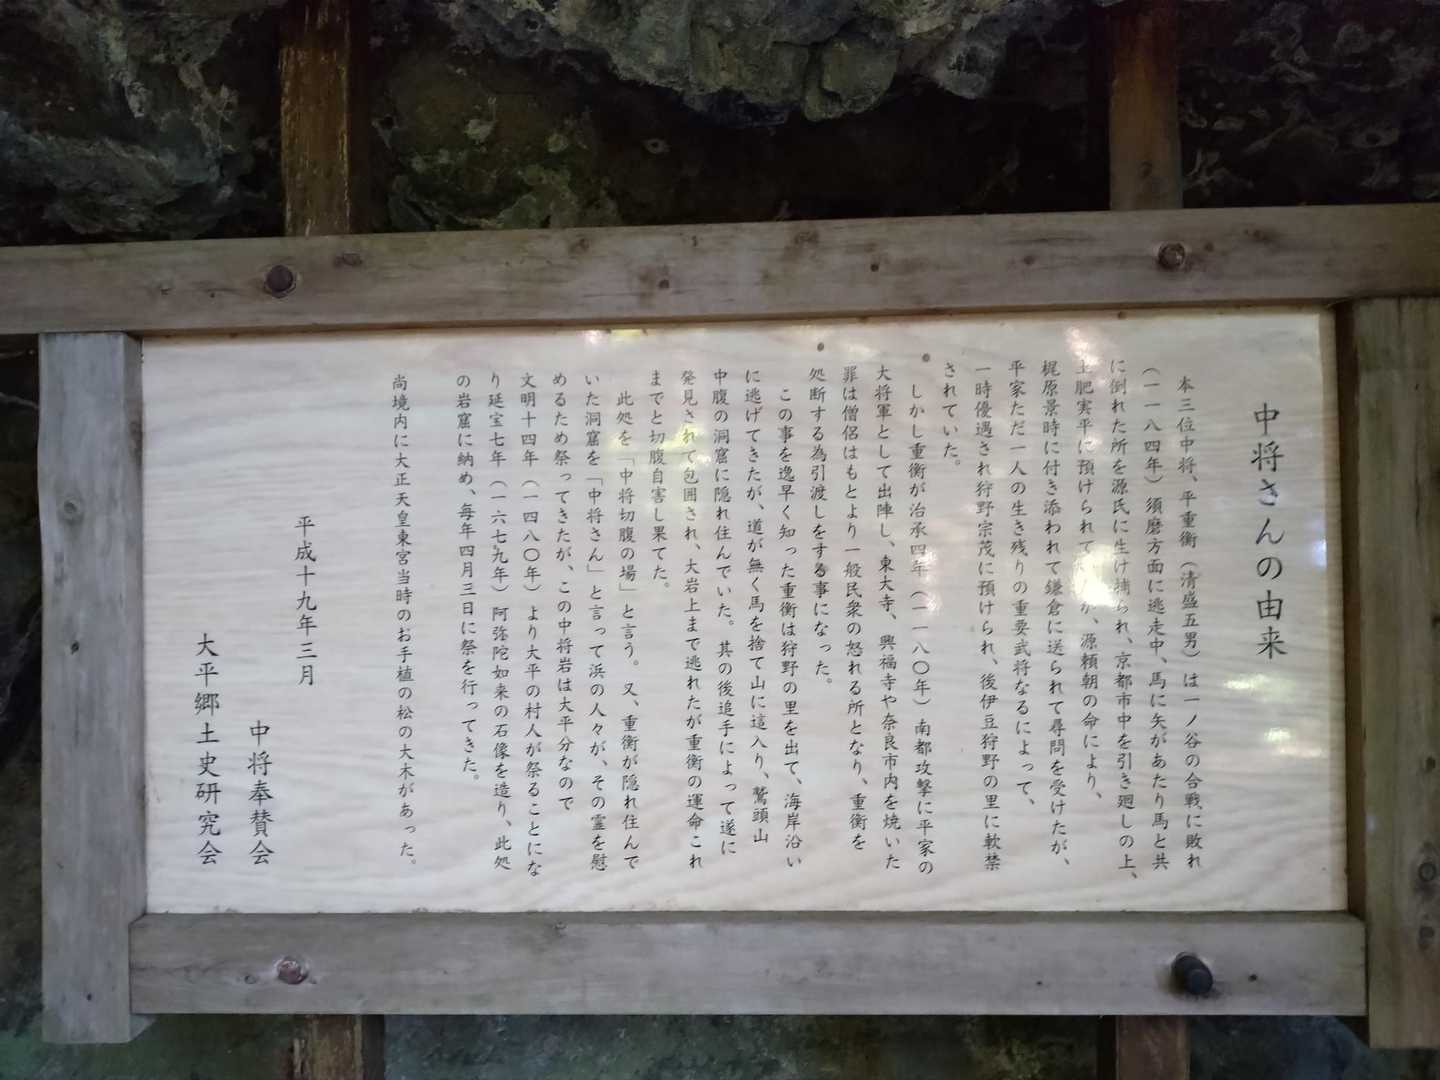 中将さんの由来
本三位中将、平重衡（清盛五男）は一ノ谷の合戦に敗れ
（一一八四年）須磨方面に逃走中、馬に矢があたり馬と共
に倒れた所を源氏に生け捕られ、京都市中を引き廻しの上、
土肥実平に預けられて、源頼朝の命により、
梶原景時に付き添われて鎌倉に送られて尋問を受けたが、
平家ただ一人の生き残りの重要武将なるによって、
一時優遇され狩野宗茂に預けられ、後伊豆狩野の里に軟禁
されていた。
しかし重衡が治承四年（一一八〇年）南都攻撃に平家の
大将軍として出陣し、東大寺、興福寺や奈良市内を焼いた
罪は僧侶はもとより一般民衆の怒れる所となり、重衡を
処断する為引渡しをする事になった。
この事を逸早く知った重衡は狩野の里を出て、海岸沿い
に逃げてきたが、道が無く馬を捨て山に這入り、鷲頭山
中腹の洞窟に隠れ住んでいた。其の後追手によって遂に
発見されて包囲され、大岩上まで逃れたが重衡の運命これ
までと切腹自害し果てた。
此処を「中将切腹の場」と言う。又、重衡が隠れ住んで
いた洞窟を「中将さん」と言って浜の人々が、その霊を慰
めるため祭ってきたが、この中将岩は大平分なので
文明十四年（一四八〇年）より大平の村人が祭ることにな
り延宝七年（一六七九年）阿弥陀如来の石像を造り、此処
の岩窟に納め、毎年四月三日に祭を行ってきた。
尚境内に大正天皇東宮当時のお手植の松の大木があった。
平成十九年三月
中将奉賛会
大平郷土史研究会